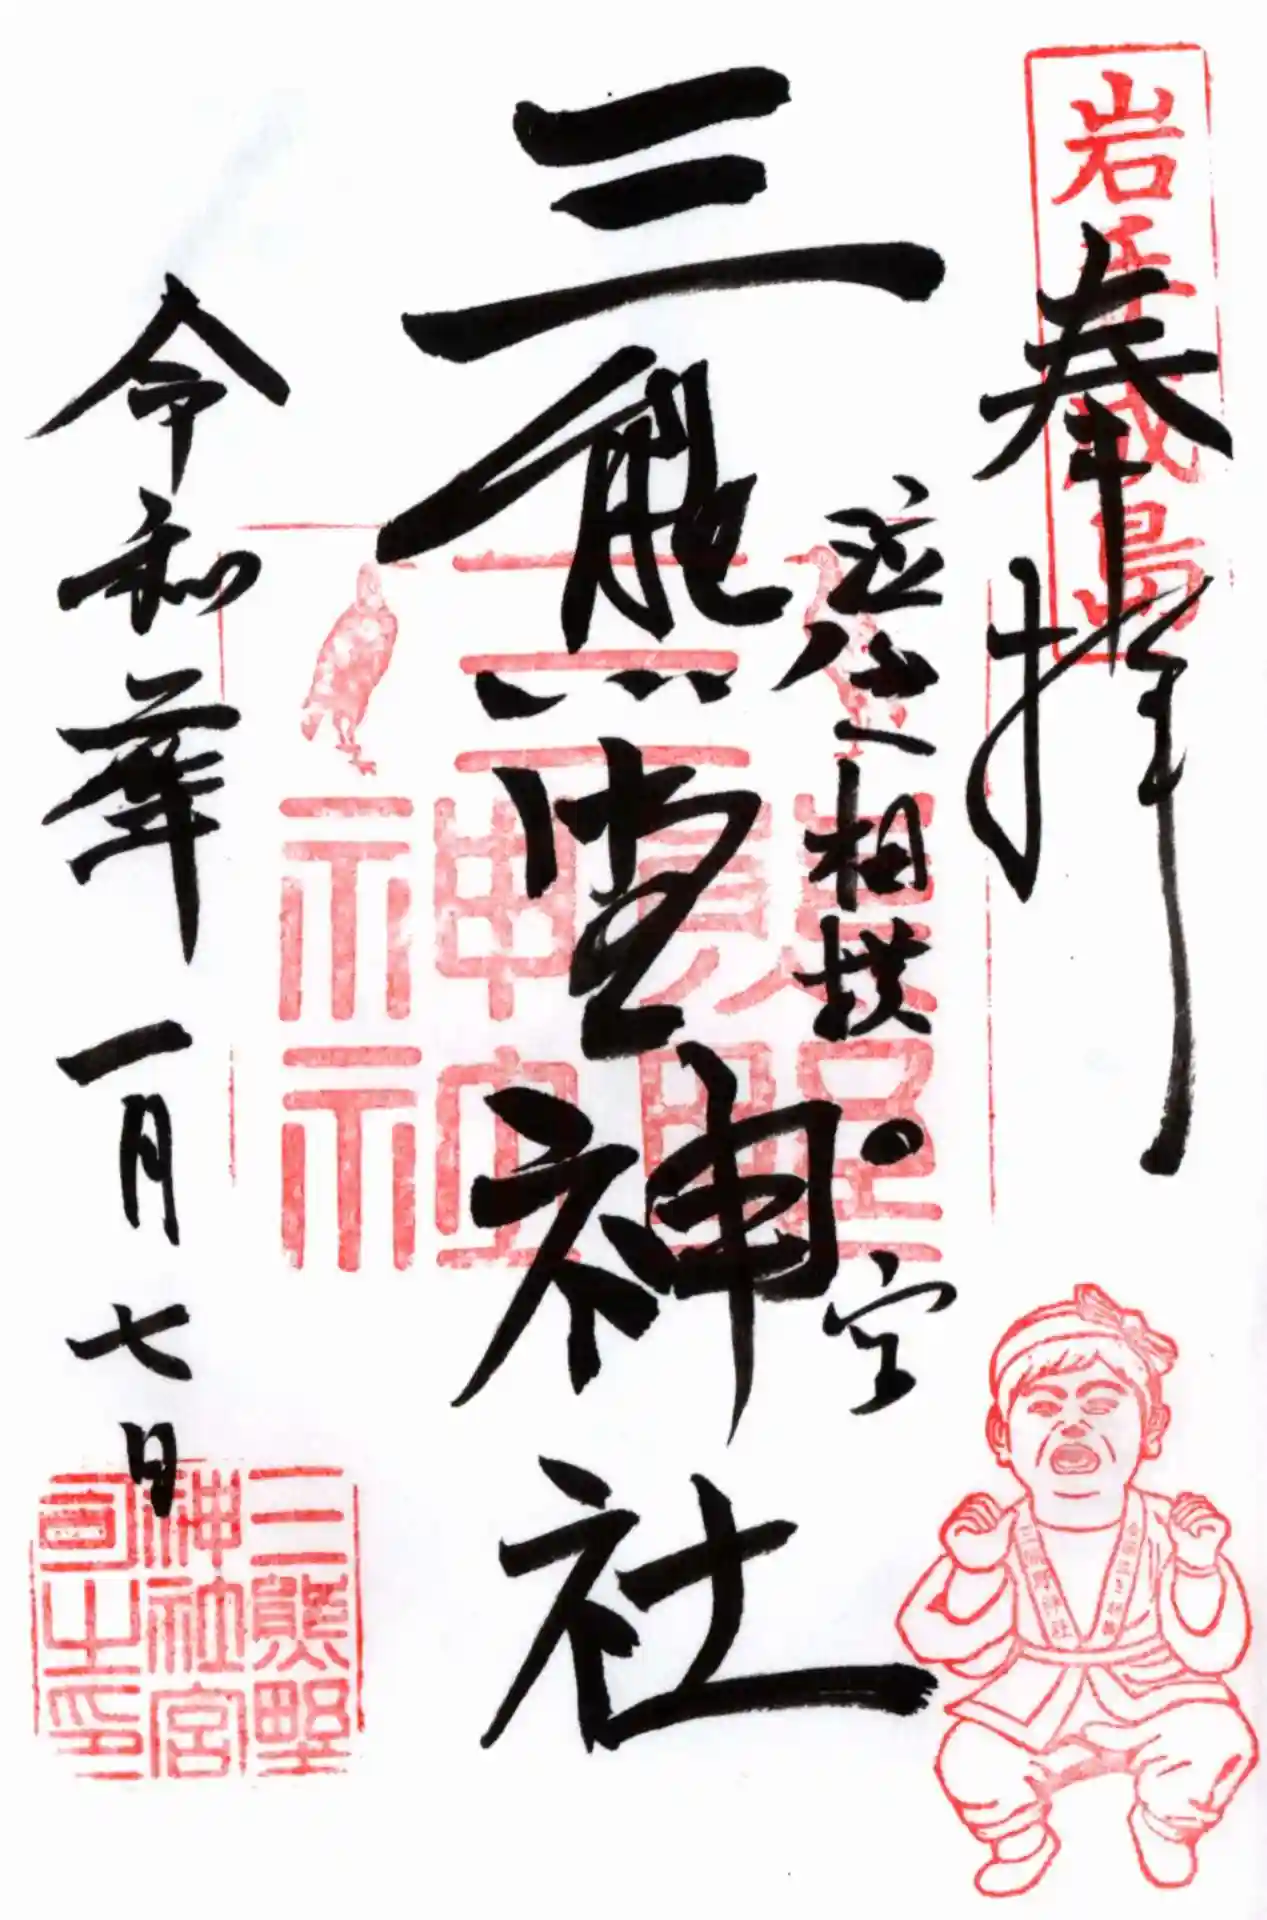 岩手成島
奉拝
泣仏相撲
三熊野神社
令和 一月七日
三熊野
神社
三熊野
神社宮
司之印